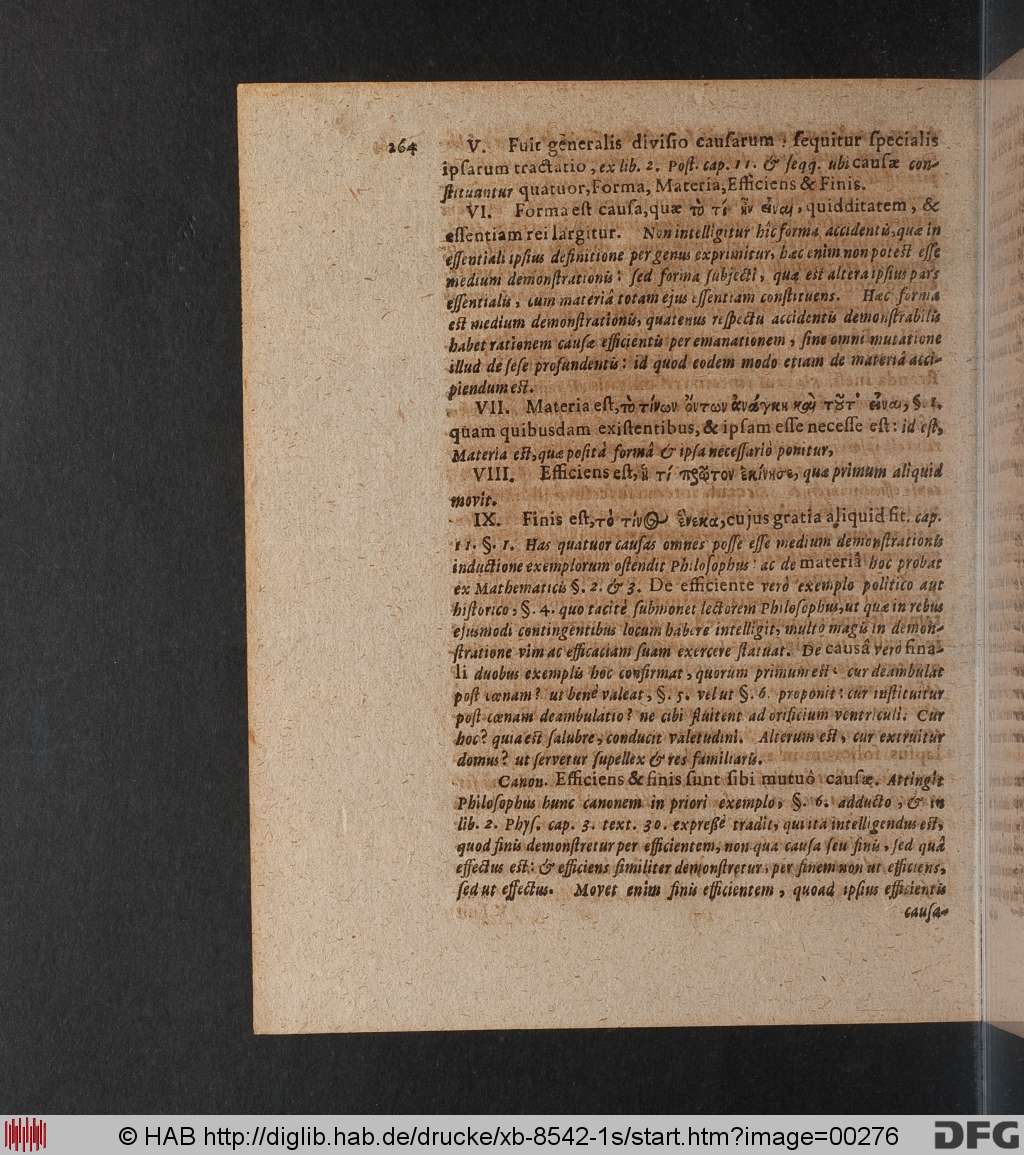 264
V. Fuit generalis divisio causarum: sequitur specialis
ipsarum tractatio, ex lib. 2. Post. cap. 11. & seqq. ubi causæ con-
stituantur quatuor, Forma, Materia, Efficiens & Finis.
VI. Forma est causa, quæ τὸ τί ἦν εἶναι, quidditatem, &
essentiam rei largitur. Non intelligitur hic forma accidentis, quæ in
essentiali ipsius definitione per genus exprimitur, hæc enim non potest esse
medium demonstrationis: sed forma subjecti, quæ est altera ipsius pars
essentialis, cum materiâ totam ejus essentiam constituens. Hæc forma
est medium demonstrationis, quatenus respectu accidentis demonstrabilis
habet rationem causæ efficientis per emanationem, sine omni mutatione
illud de sese profundentis: id quod eodem modo etiam de materiâ acci-
piendum est.
VII. Materia est, τὸ τίνων ὄντων ἀνάγκη καὶ τοῦτ' εἶναι, §. 1.
quam quibusdam existentibus, & ipsam esse necesse est: id est,
Materia est, quæ positâ formâ & ipsa necessariò ponitur,
VIII. Efficiens est, ἥ τί πρῶτον ἐκίνησε, quæ primum aliquid
movit.
IX. Finis est, τὸ τίνος ἕνεκα, cujus gratia aliquid fit. cap.
11. §. 1. Has quatuor causas omnes posse esse medium demonstrationis
inductione exemplorum ostendit Philosophus: ac de materiâ hoc probat
ex Mathematicis §. 2. & 3. De efficiente verò exemplo politico aut
historico, §. 4. quo tacitè submonet lectorem Philosophus, ut quæ in rebus
ejusmodi contingentibus locum habere intelligit, multo magis in demon-
stratione vim ac efficaciam suam exercere statuat. De causâ verò fina-
li duobus exemplis hoc confirmat, quorum primum est: cur deambulat
post cœnam? ut benè valeat, §. 5. vel ut §. 6. proponit: cur instituitur
post cœnam deambulatio? ne cibi fluitent ad orificium ventriculi. Cur
hoc? quia est salubre, conducit valetudini. Alterum est, cur extruitur
domus? ut servetur supellex & res familiaris.
Canon. Efficiens & finis sunt sibi mutuò causæ. Attingit
Philosophus hunc canonem in priori exemplo, §. 6. adducto, & in
lib. 2. Phys. cap. 3. text. 30. expreßè tradit, qui ita intelligendus est,
quod finis demonstretur per efficientem, non qua causa seu finis, sed quâ
effectus est: & efficiens similiter demonstretur, per finem non ut efficiens,
sed ut effectus. Movet enim finis efficientem, quoad ipsius efficientis
causa-
© HAB http://diglib.hab.de/drucke/xb-8542-1s/start.htm?image=00276
DFG